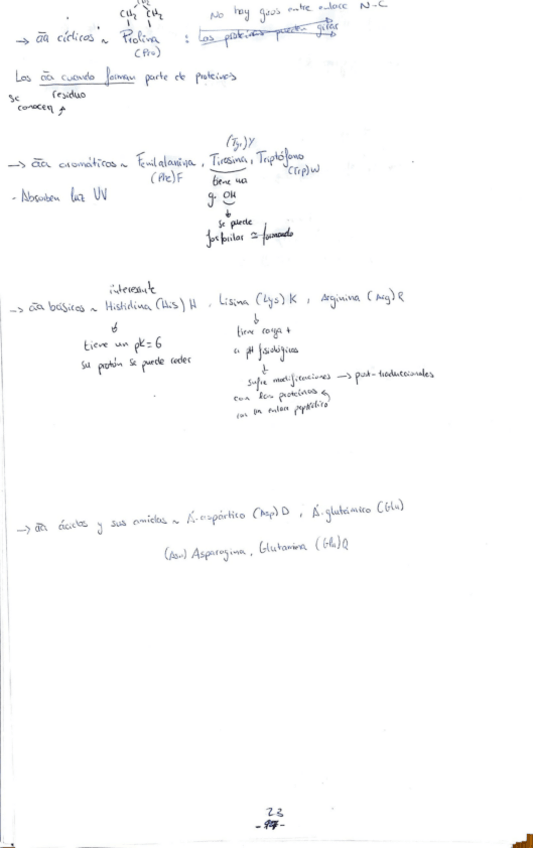 CH2 CH2
No hay giros entre enlace N-C
→ āā cíclicos ~ Prolina : Las proteínas pueden girar
(Pro)
Los āā cuando forman parte de proteínas
se conocen residuo
(Tyr)Y
→ āā aromáticos ~ Fenilalanina, Tirosina, Triptófono
(Phe)F tiene un (Trp)W
- Absorben luz UV
g. OH
se puede
fosforilar
interesante
→ āā básicos ~ Histidina (His) H, Lisina (Lys) K, Arginina (Arg) R
tiene un pK=6
su protón se puede ceder
tiene carga +
a pH fisiológicos
sufre modificaciones → post-traduccionales
con las proteínas
con un enlace peptídico
→ āā ácidos y sus amidas ~ Á.aspártico (Asp) D, Á.glutámico (Glu)
(Asn) Asparagina, Glutamina (Glu)Q
23